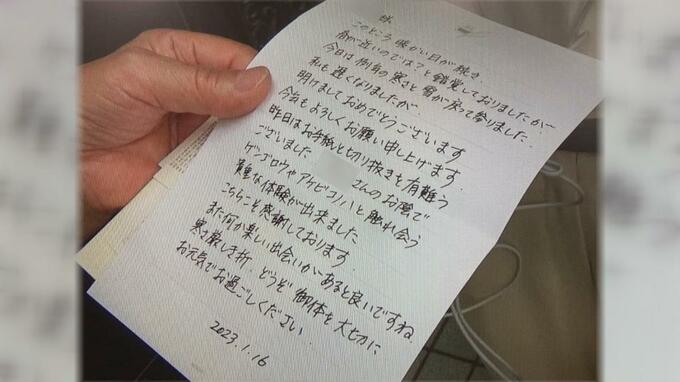 様
このところ暖かい日が続き、
春が近いのではと錯覚しておりましたが
今日は例年の寒さと雪が戻って参りました.
私も遅くなりましたが、
明けましておめでとうございます
今年もよろしくお願い申し上げます.
昨日はお手紙と切り抜きも有難う
ございました さんのお陰で
ゲンゴロウやアケビコノハと触れ合う
貴重な体験が出来ました
こちらこそ感謝しております.
また何か楽しい出会いがあると良いですね.
寒さ厳しき折、どうぞ御体を大切に
お元気でお過ごしください.
2023.1.16